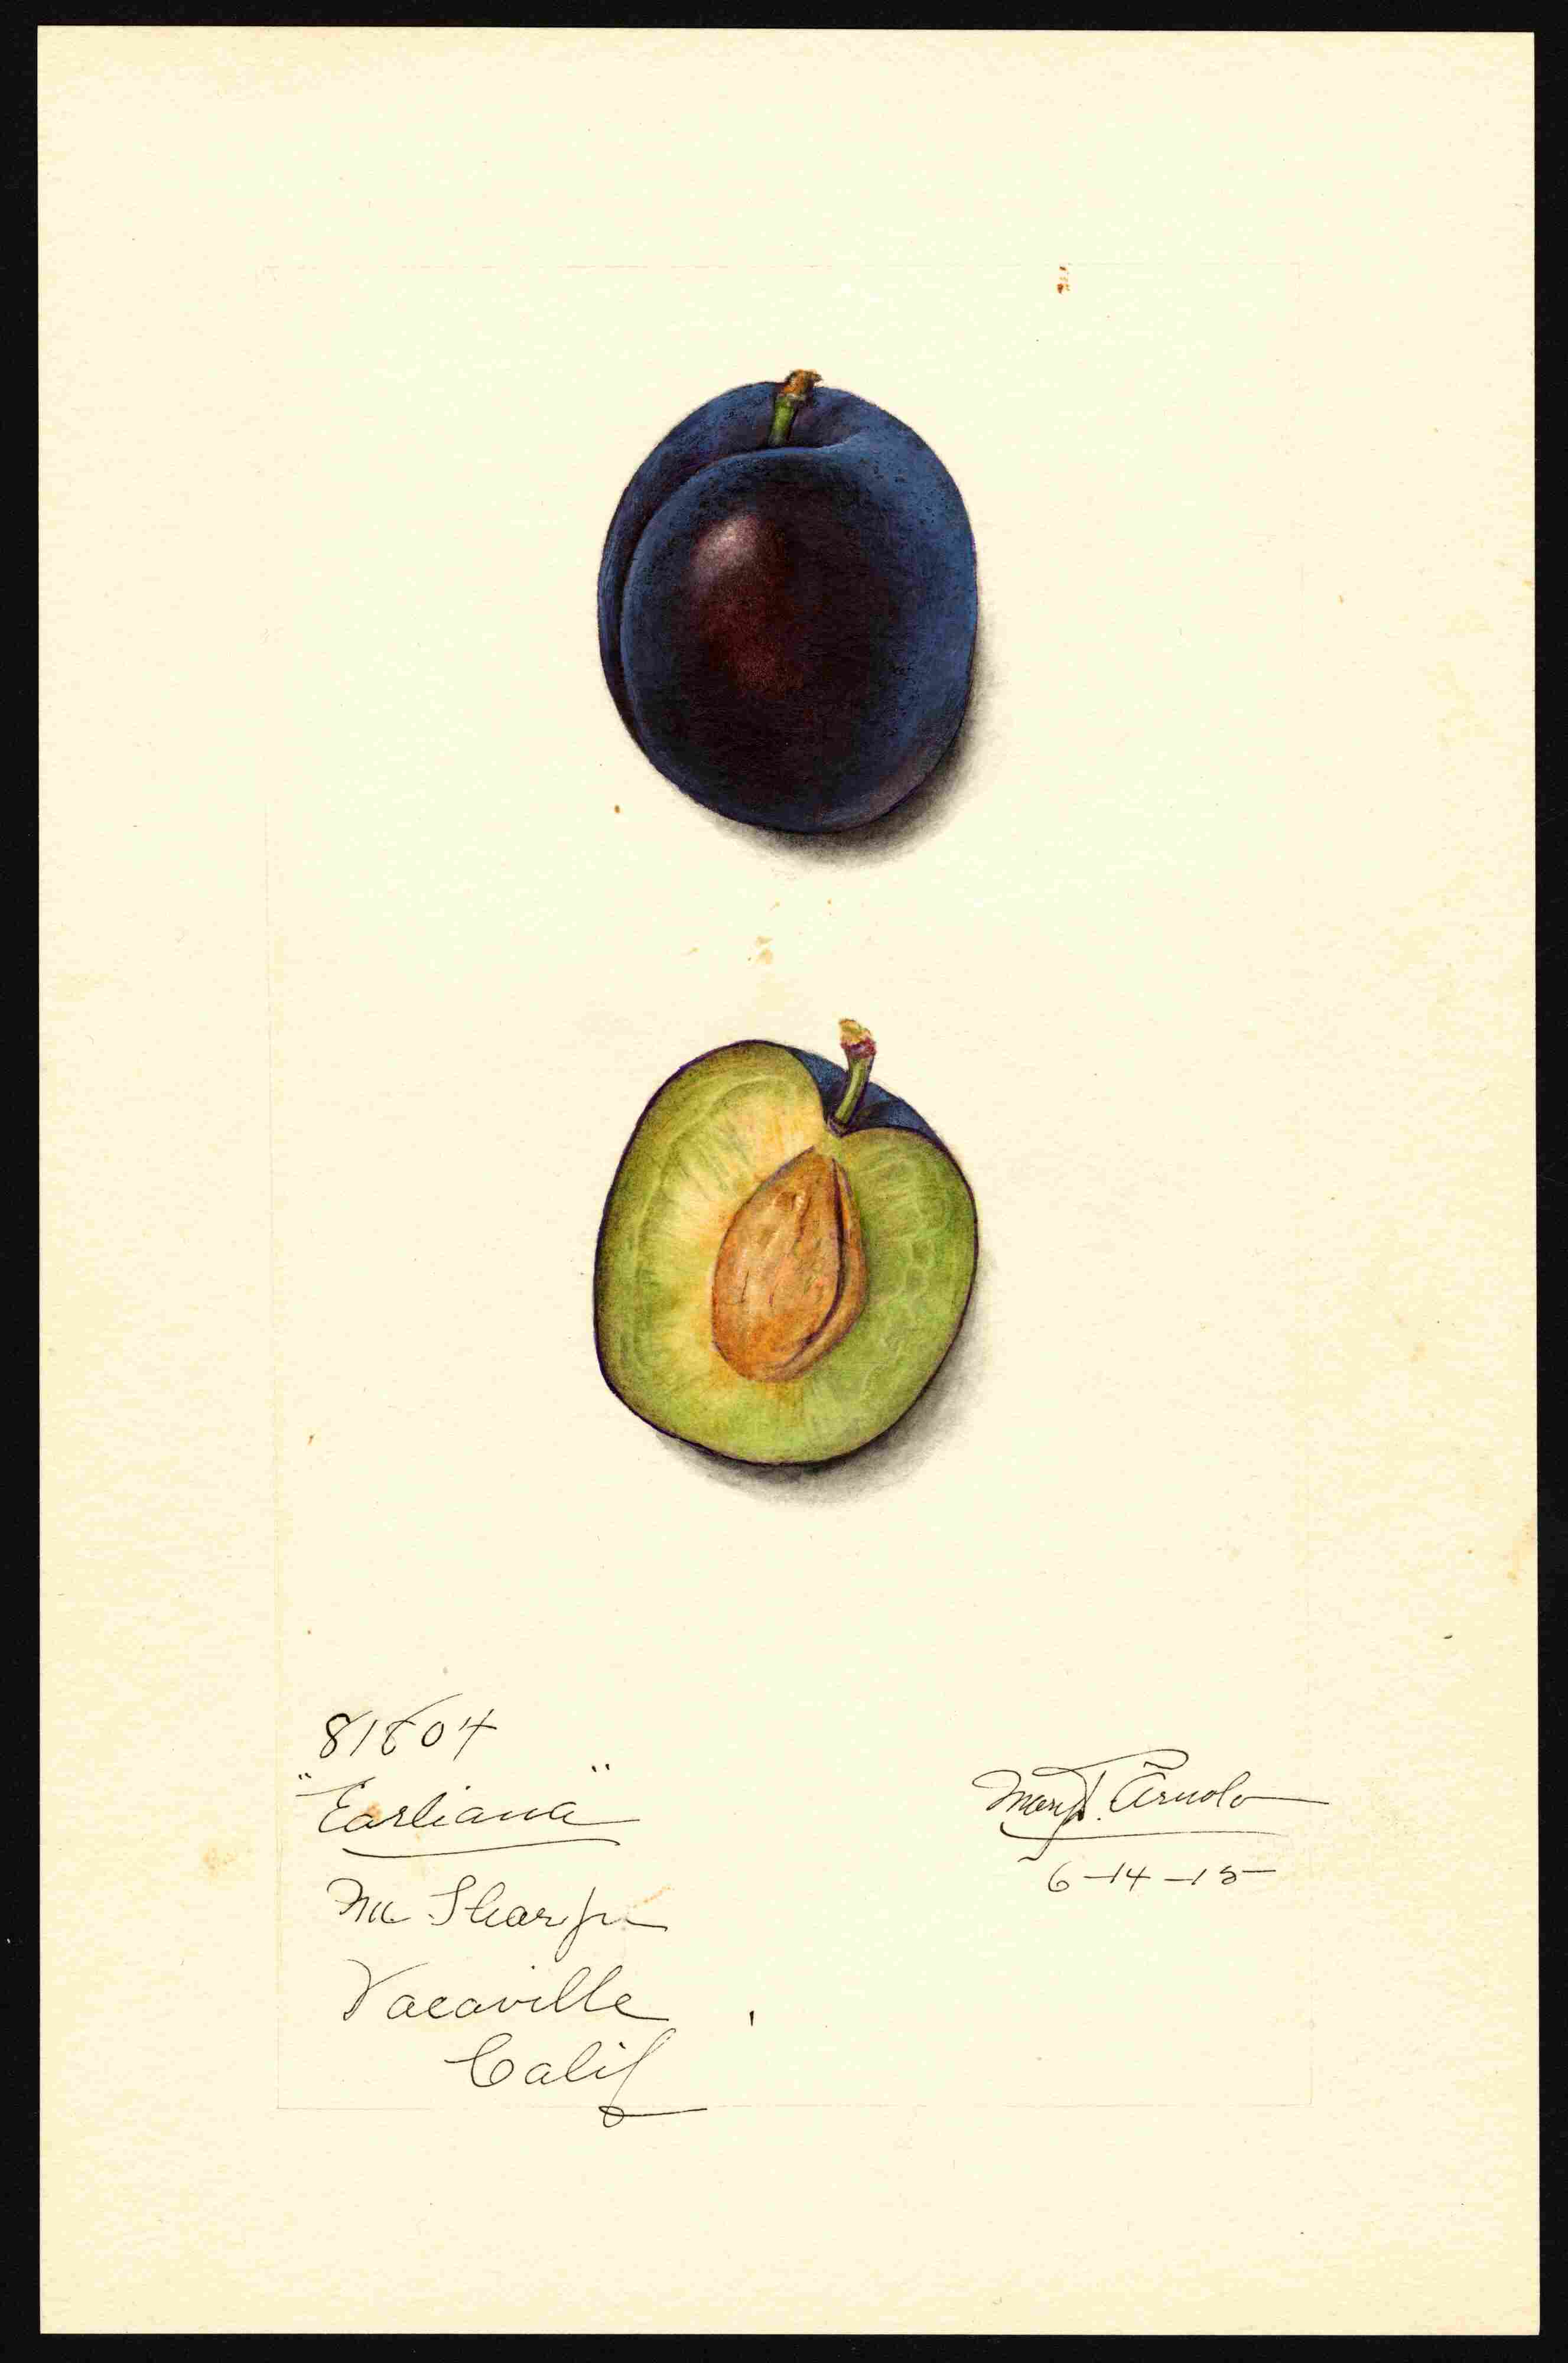 81804
"Earliana"
Sharpe
Vacaville
Calif
Mary D. Arnold
6-14-15